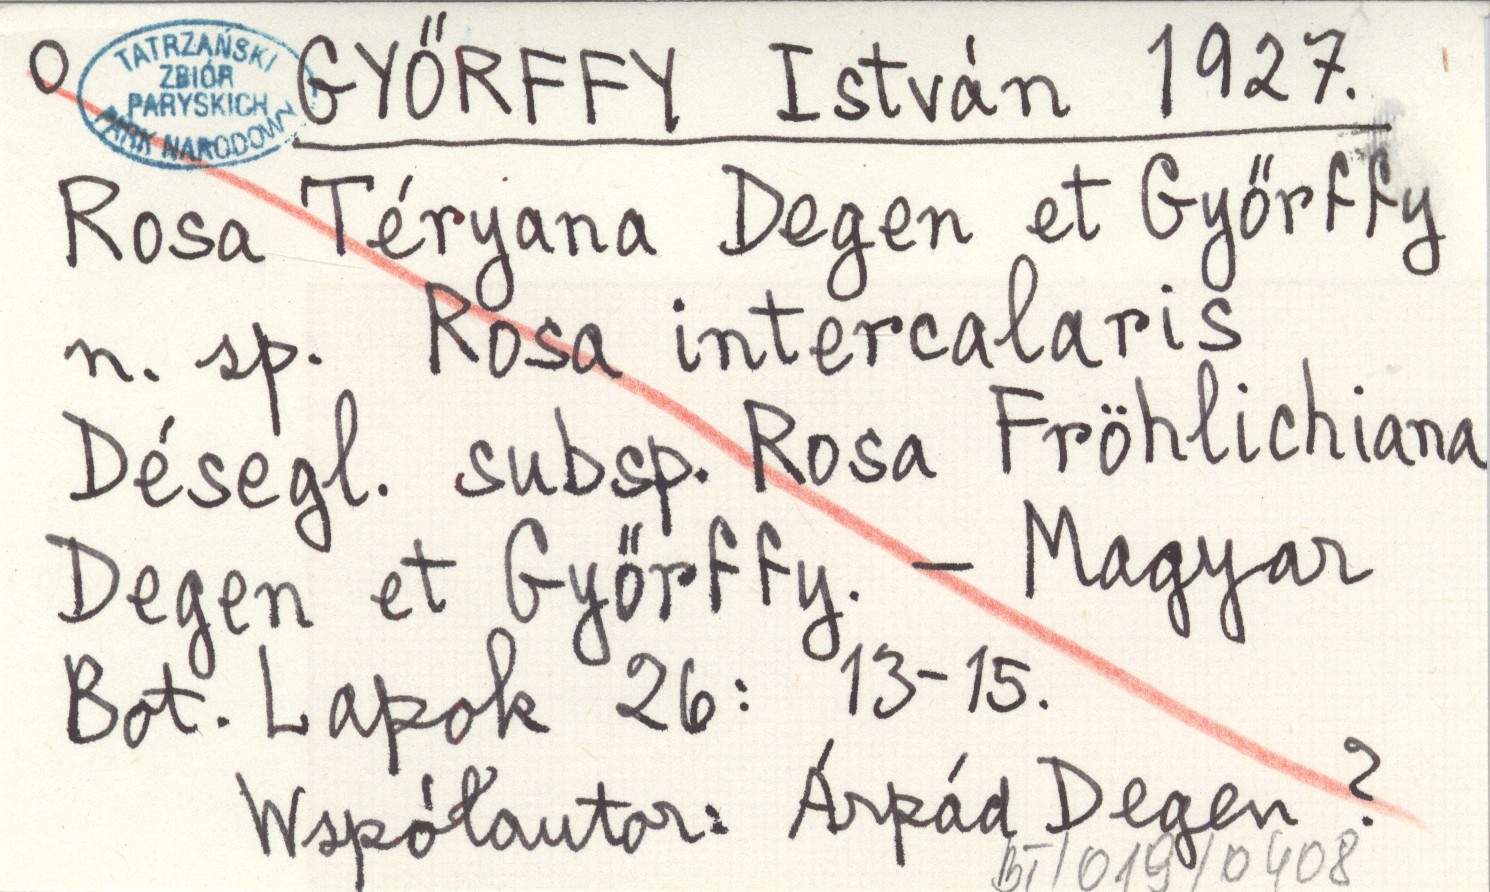 O
TATRZAŃSKI
ZBIÓR
PARYSKICH
PARK NARODOWY
GYŐRFFY István 1927.
Rosa Téryana Degen et Győrffy
n. sp. Rosa intercalaris
Désegl. subsp. Rosa Fröhlichiana
Degen et Győrffy. — Magyar
Bot. Lapok 26: 13-15.
Współautor: Árpád Degen ?
BT/019/0408